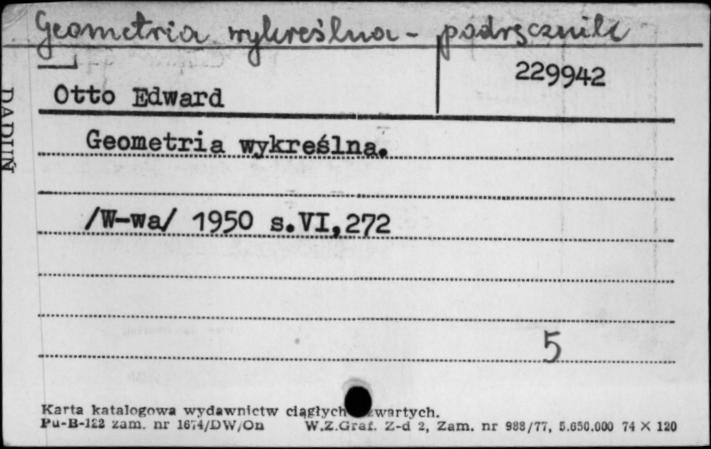 Geometria wykreślna - podręcznik
229942
Otto Edward
Geometria wykreślna.
/W-wa/ 1950 s.VI,272
5
Karta katalogowa wydawnictw ciągłych zwartych.
Pu-B-122 zam. nr 1674/DW/On W.Z.Graf. Z-d 2, Zam. nr 988/77, 5.650.000 74 X 120